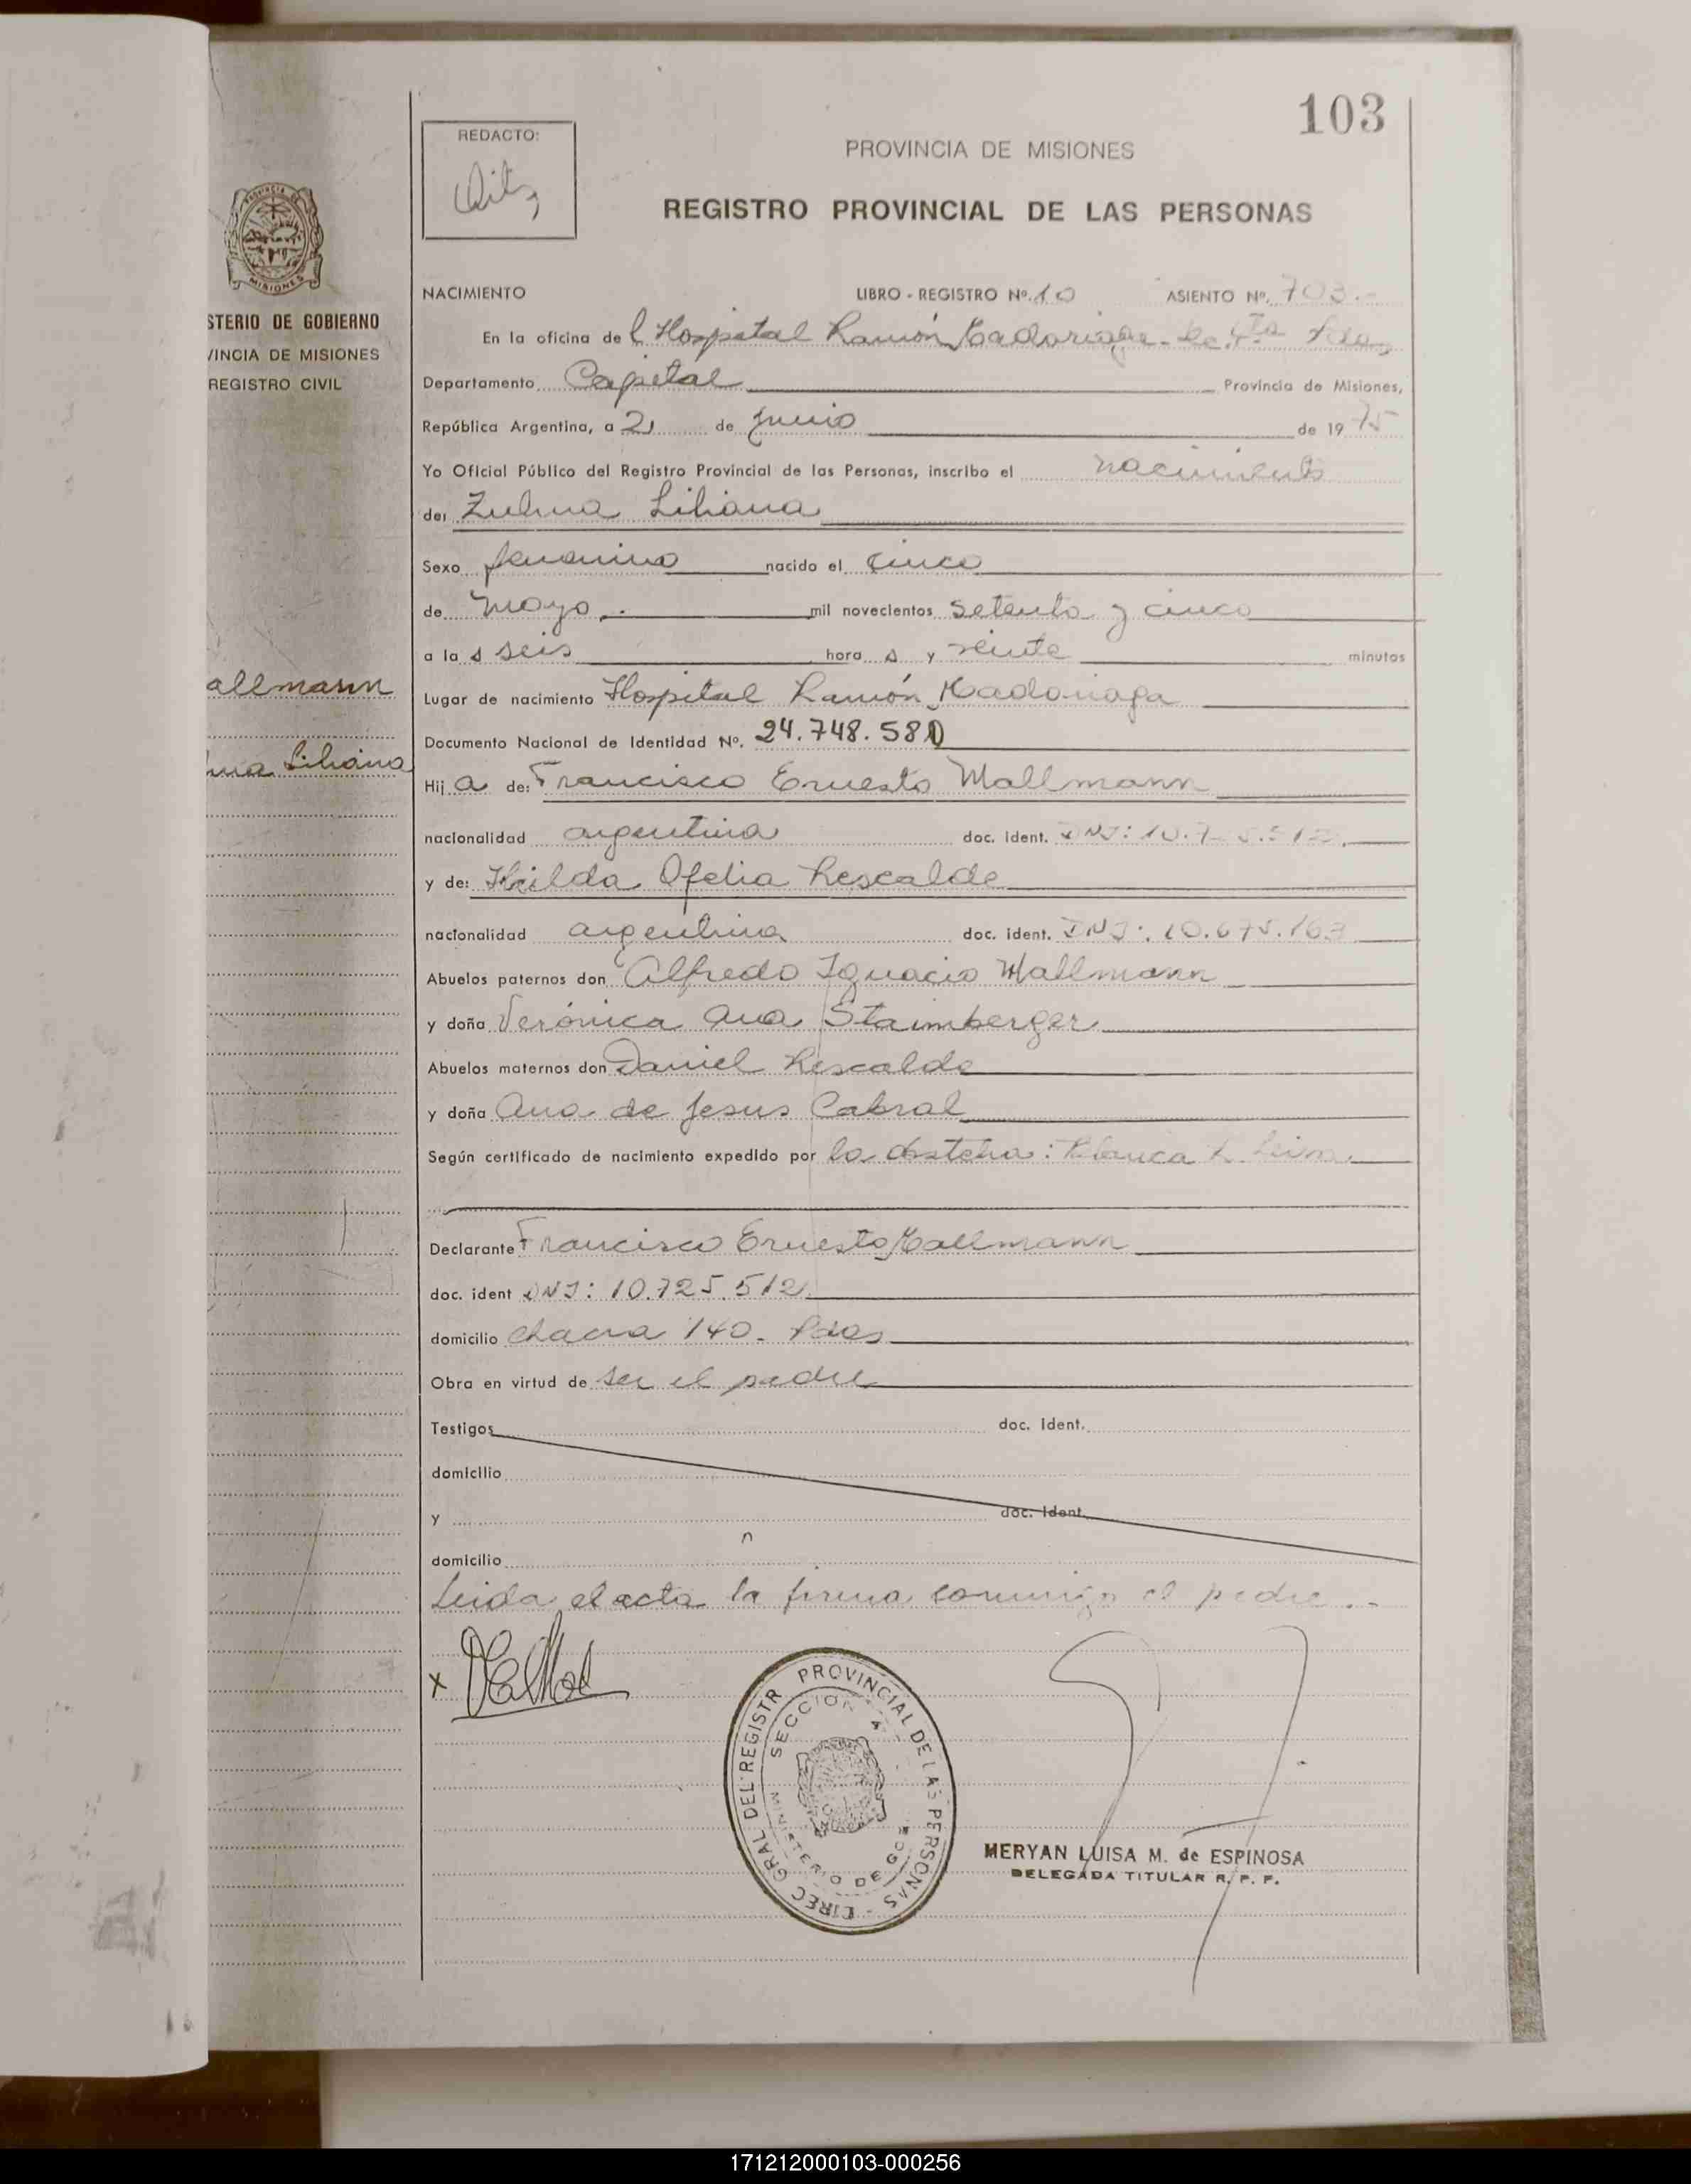 103
REDACTO:
PROVINCIA DE MISIONES
REGISTRO PROVINCIAL DE LAS PERSONAS
MISIONES
STERIO DE GOBIERNO
VINCIA DE MISIONES
REGISTRO CIVIL
allmann
ma Liliana
NACIMIENTO LIBRO - REGISTRO Nº. 10 ASIENTO Nº. 703.-
En la oficina de l Hospital Ramón Madariaga - Sec. 4ta Pdas,
Departamento Capital Provincia de Misiones,
República Argentina, a 21 de junio de 19 75
Yo Oficial Público del Registro Provincial de las Personas, inscribo el nacimiento
de: Zulma Liliana
Sexo femenino nacido el cinco
de mayo.- mil novecientos setenta y cinco
a la s seis hora s y veinte minutos
Lugar de nacimiento Hospital Ramón Madariaga
Documento Nacional de Identidad Nº. 24.748.580
Hij a de: Francisco Ernesto Mallmann
nacionalidad argentina doc. ident. DNI:
y de: Hilda Ofelia Rescalde
nacionalidad argentina doc. ident. DNI: 10.675.163
Abuelos paternos don Alfredo Ignacio Mallmann
y doña Verónica Ana Staimberger
Abuelos maternos don Daniel Rescalde
y doña Ana de Jesus Cabral
Según certificado de nacimiento expedido por la obstetra: Blanca
Declarante Francisco Ernesto Mallmann
doc. ident DNI: 10.725.512
domicilio chacra 140 - Pdas
Obra en virtud de ser el padre
Testigos doc. ident.
domicilio
y doc. ident.
domicilio
Leida el acta la firma conmigo el padre.-
x
DIREC GRAL DEL REGISTR PROVINCIAL DE LAS PERSONAS
SECCION 4
MINISTERIO DE GOB
MERYAN LUISA M. de ESPINOSA
DELEGADA TITULAR R. P. P.
171212000103-000256